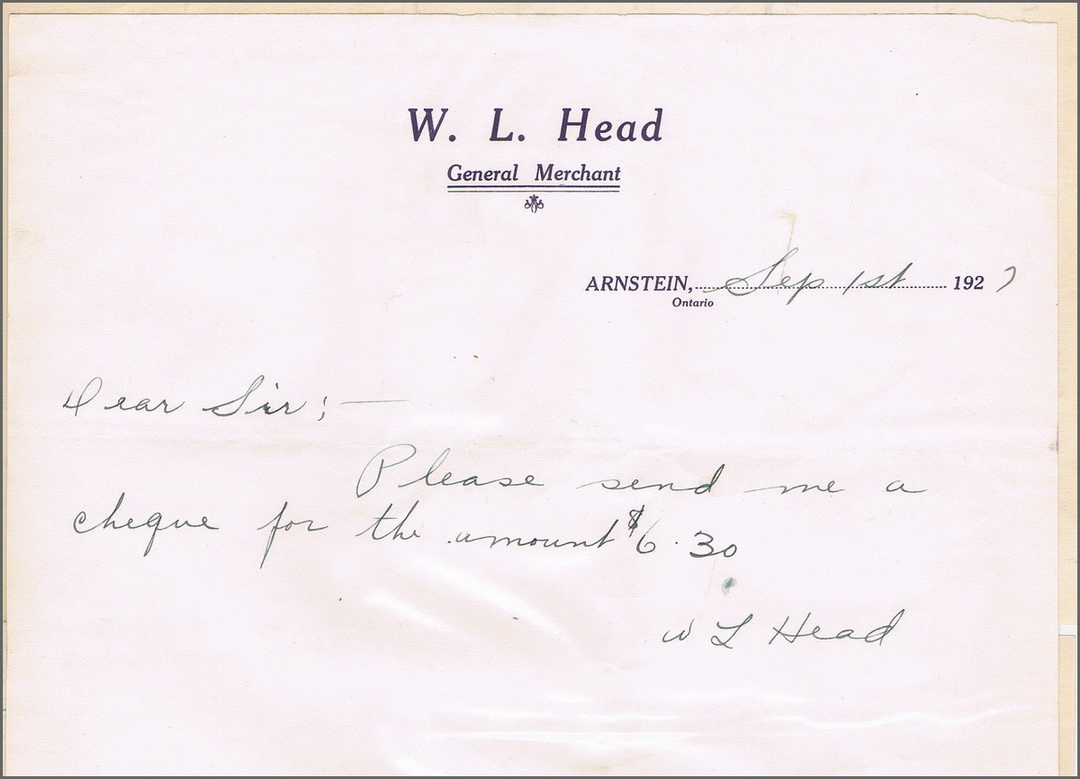 W. L. Head
General Merchant
ARNSTEIN, Sep 1st 1927
Ontario
Dear Sir; —
Please send me a
cheque for the amount $6.30
W L Head